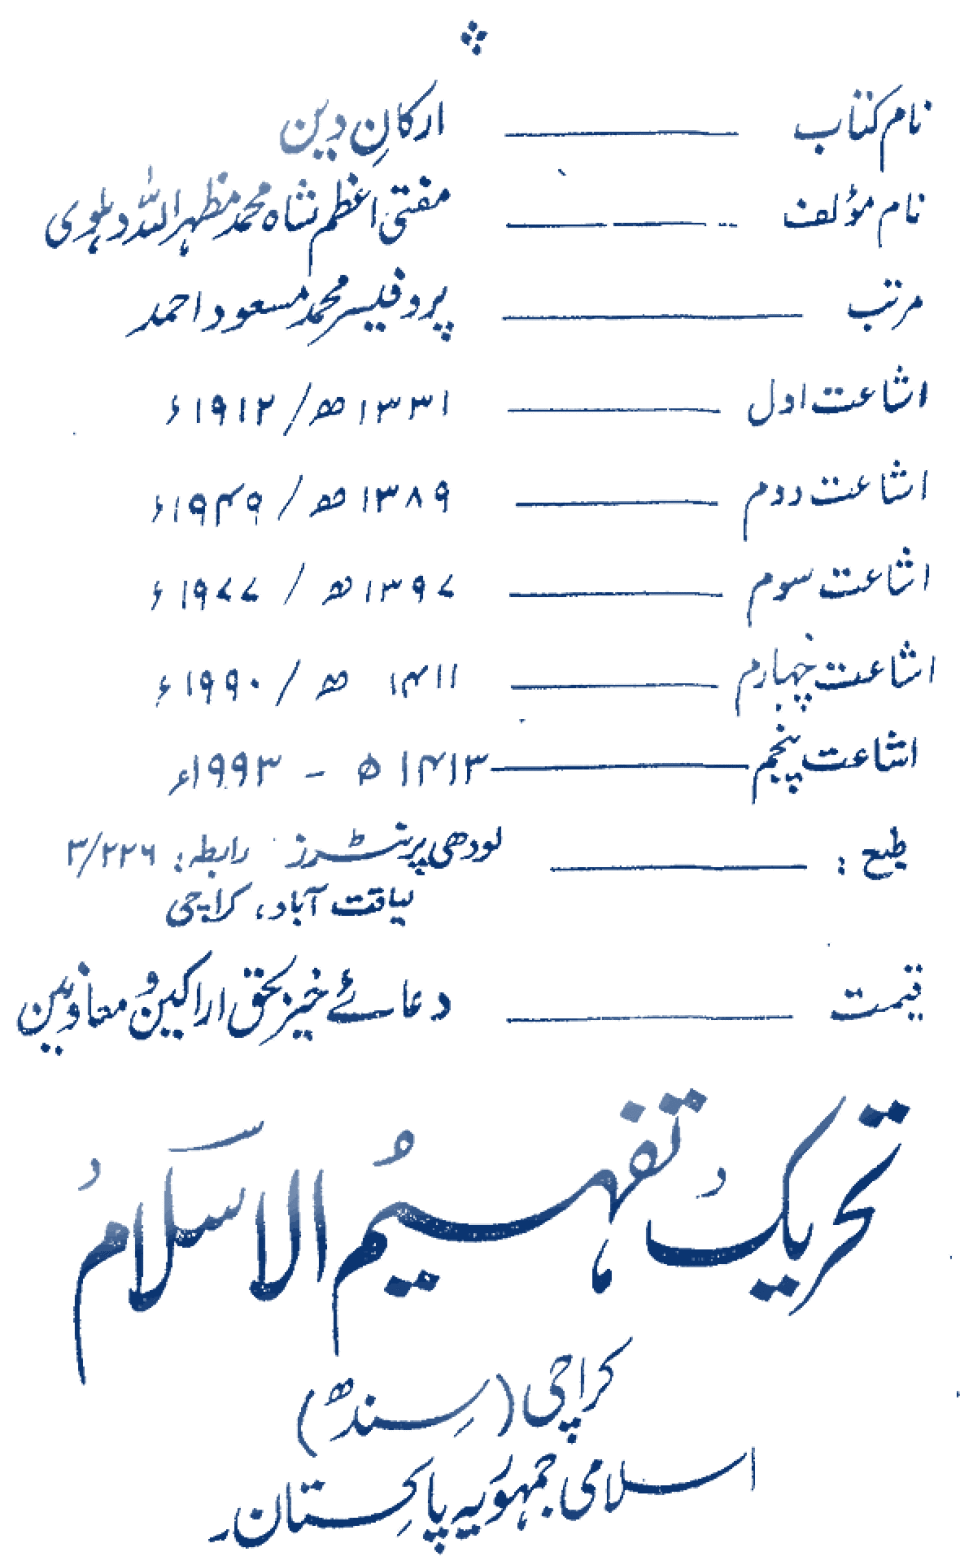 نام کتاب ـــــــ ارکانِ دین
نام مؤلف ـــــــ مفتی اعظم شاہ محمد مظہر اللہ دہلوی
مرتب ـــــــ پروفیسر محمد مسعود احمد
اشاعت اول ـــــــ ۱۳۳۱ھ / ۱۹۱۲ء
اشاعت دوم ـــــــ ۱۳۸۹ھ / ۱۹۴۹ء
اشاعت سوم ـــــــ ۱۳۹۷ھ / ۱۹۷۷ء
اشاعت چہارم ـــــــ ۱۴۱۱ھ / ۱۹۹۰ء
اشاعت پنجم ـــــــ ۱۴۱۳ھ - ۱۹۹۳ء
طبع : ـــــــ لودھی پرنٹرز رابطہ: ۳/۲۲۶
لیاقت آباد، کراچی
قیمت ـــــــ دعائے خیر بحق اراکین و معاونین
تحریک تفہیمُ الاسلامُ
کراچی (سِندھ)
اسلامی جمہوریہ پاکِستان۔